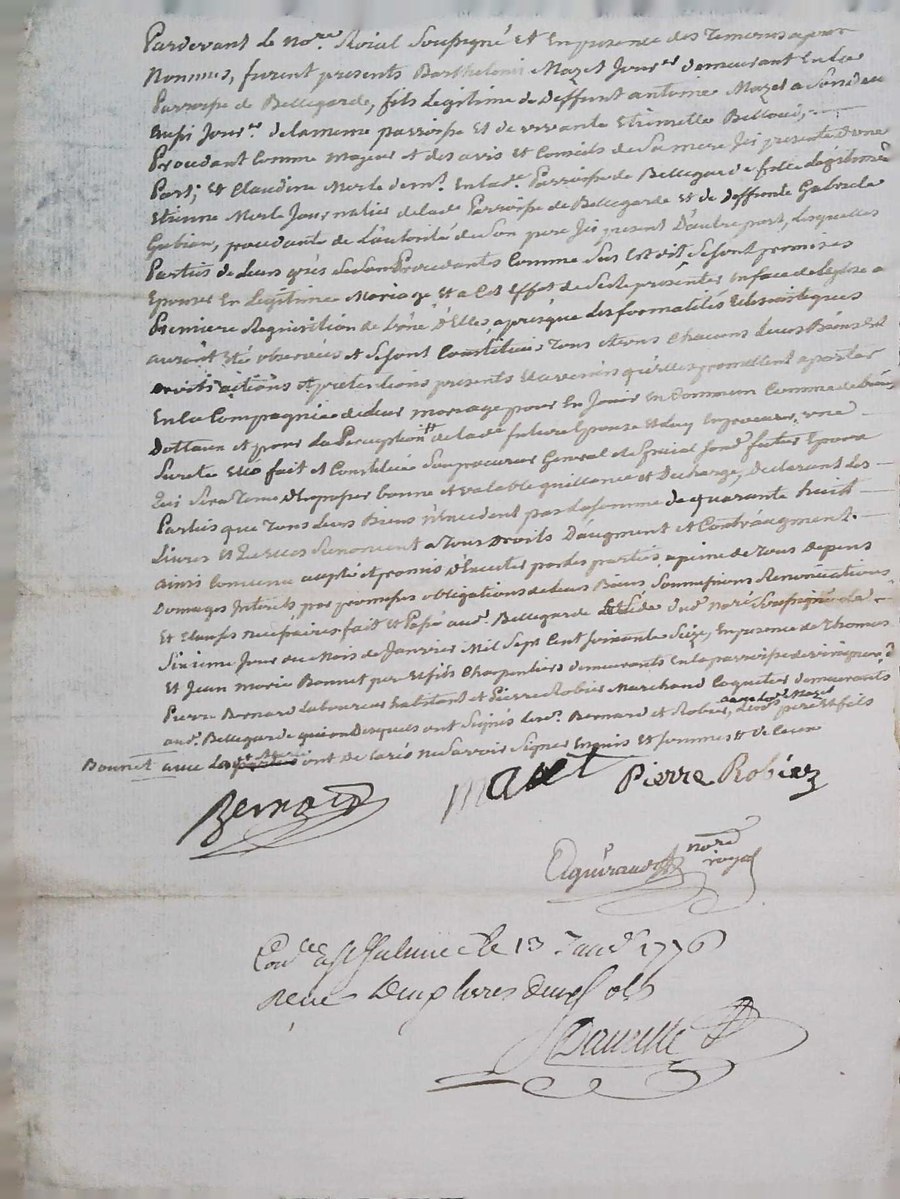 Pardevant Le no.re Roial Soussigné Et En presence des Temoins apres
Nommes, furent presents Barthelemi Mazet Jour.er demeurant En La
Parroisse de Bellegarde, fils Legitime de deffunt antoine Mazet a Son
aussi Jour.er de la meme parroisse Et de vivante Etiennette
Procedant Comme majeur et des avis et Conseils de Sa mere Ici presente d'une
Part; et Claudine Merle dem.t En lad.e Parroisse de Bellegarde fille Legitime a
Etienne Merle Journalier de lad.e Parroisse de Bellegarde et de deffunte Gabrielle
Gubian, procedante de L'autorité de Son pere Ici present D'autre part, Lesquelles
Parties de Leurs grés Se Sont Procedantes Comme Sus Est dit Se font promises
Epouser En Legitime Mariage, Et a Cet Effet de Se presenter En face de Leglise a
Premiere Requisition de L'une d'Elles apres que Les formalités Eclesiastiques
auront Eté observées et Se font Constitués Tous et uns Chacuns Leurs Biens Et
droits actions et pretentions presents Et avenirs qu'elles promettent aporter
En La Compagnie de Leur mariage pour En Jouir En Commun Comme de biens
Dottaux et pour La Perception de lad.e future Epouse
Sureté Elle fait et Constitue Son procureur General et Special Sond. futur Epoux
qui Sera Tenu d'En passer bonne et valable quittance et Decharge, Declarant Les
Parties que Tous Leurs Biens n'Excedent pas La Somme de quarante huit
Livres Et Icelles Renoncent a Tous Droits D'augment et Contraugment.
ainsi Convenu accepté et promis d'Executer par Les parties a peine de Tous depens
Domages Interets par promesses obligations de Leurs Biens Soumissions Renonciations
Et Clauses necessaires fait et Passé aud. Bellegarde Etude dud. no.re Soussigné Le
Sixieme Jour du Mois de Janvier Mil Sept Cent Soixante Seize, En presence de Thomas
Et Jean Marie Bonnet pere Et fils Charpentiers demeurants En la parroisse de
Pierre Bernard Laboureur habitant et Pierre Robier Marchand Coquetier demeurants
aud. Bellegarde qui ont Signés Led. Bernard et Robier, avec Led. Mazet Lesd. pere et fils
Bonnet avec Les ont declarés ne Savoir Signer Enquis Et Sommes
Bernard mazet Pierre Robier
nore royal
Con.lé a St Galmier Le 13 Janv.r 1776
Reçu Deux Livres deux Sols